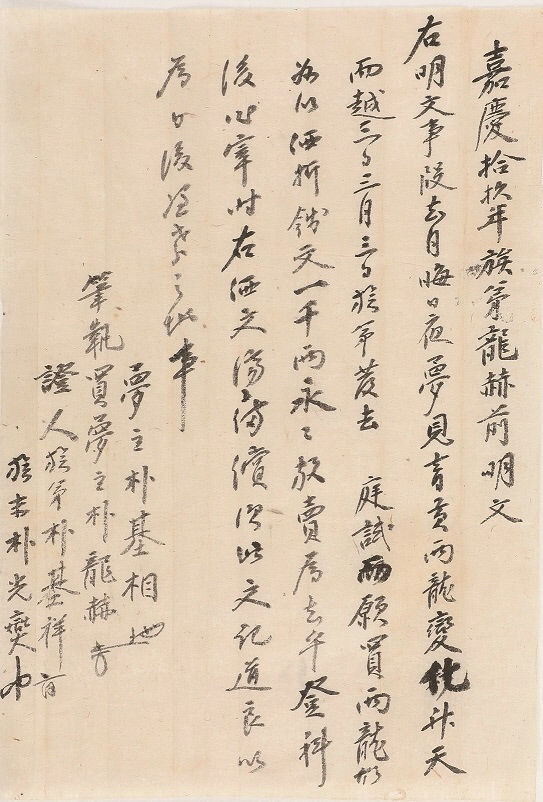 嘉慶拾玖年族弟龍赫前明文
右明文事段去月晦日夜夢見青黃兩龍變化升天
而越三日三月三日族弟發去 庭試而願買兩龍故
以価折錢文一千兩永〻放賣爲去乎登科
後出宰時右価文備償次此文記導良以
爲日後憑考之地事
夢主朴基相
筆執買夢主朴龍赫
證人族弟朴基祥
朴光燮